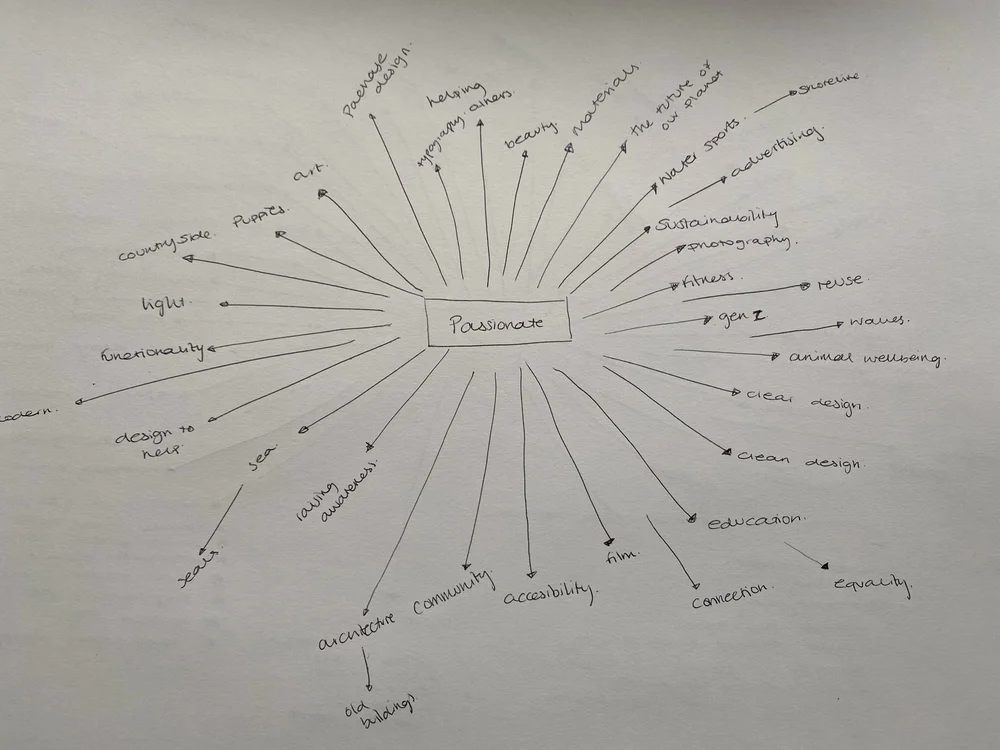 Passionate
art.
Packase
design.
typography.
helping
others.
beauty.
materials
the future of
our planet
water sports.
shoreline
advertising.
sustainability
photography.
fitness.
reuse.
gen Z
waves.
animal wellbeing.
clear design.
clean design.
education.
equality.
connection.
film.
accesibility.
community.
architecture
old
buildings.
raising
awareness.
sea.
seals.
design to
help.
odern.
functionality
light.
countryside.
puppies.